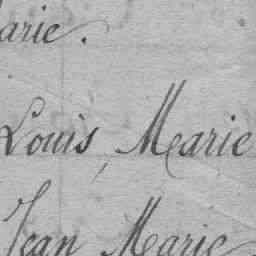 arie.
Louis, Marie
Jean Marie